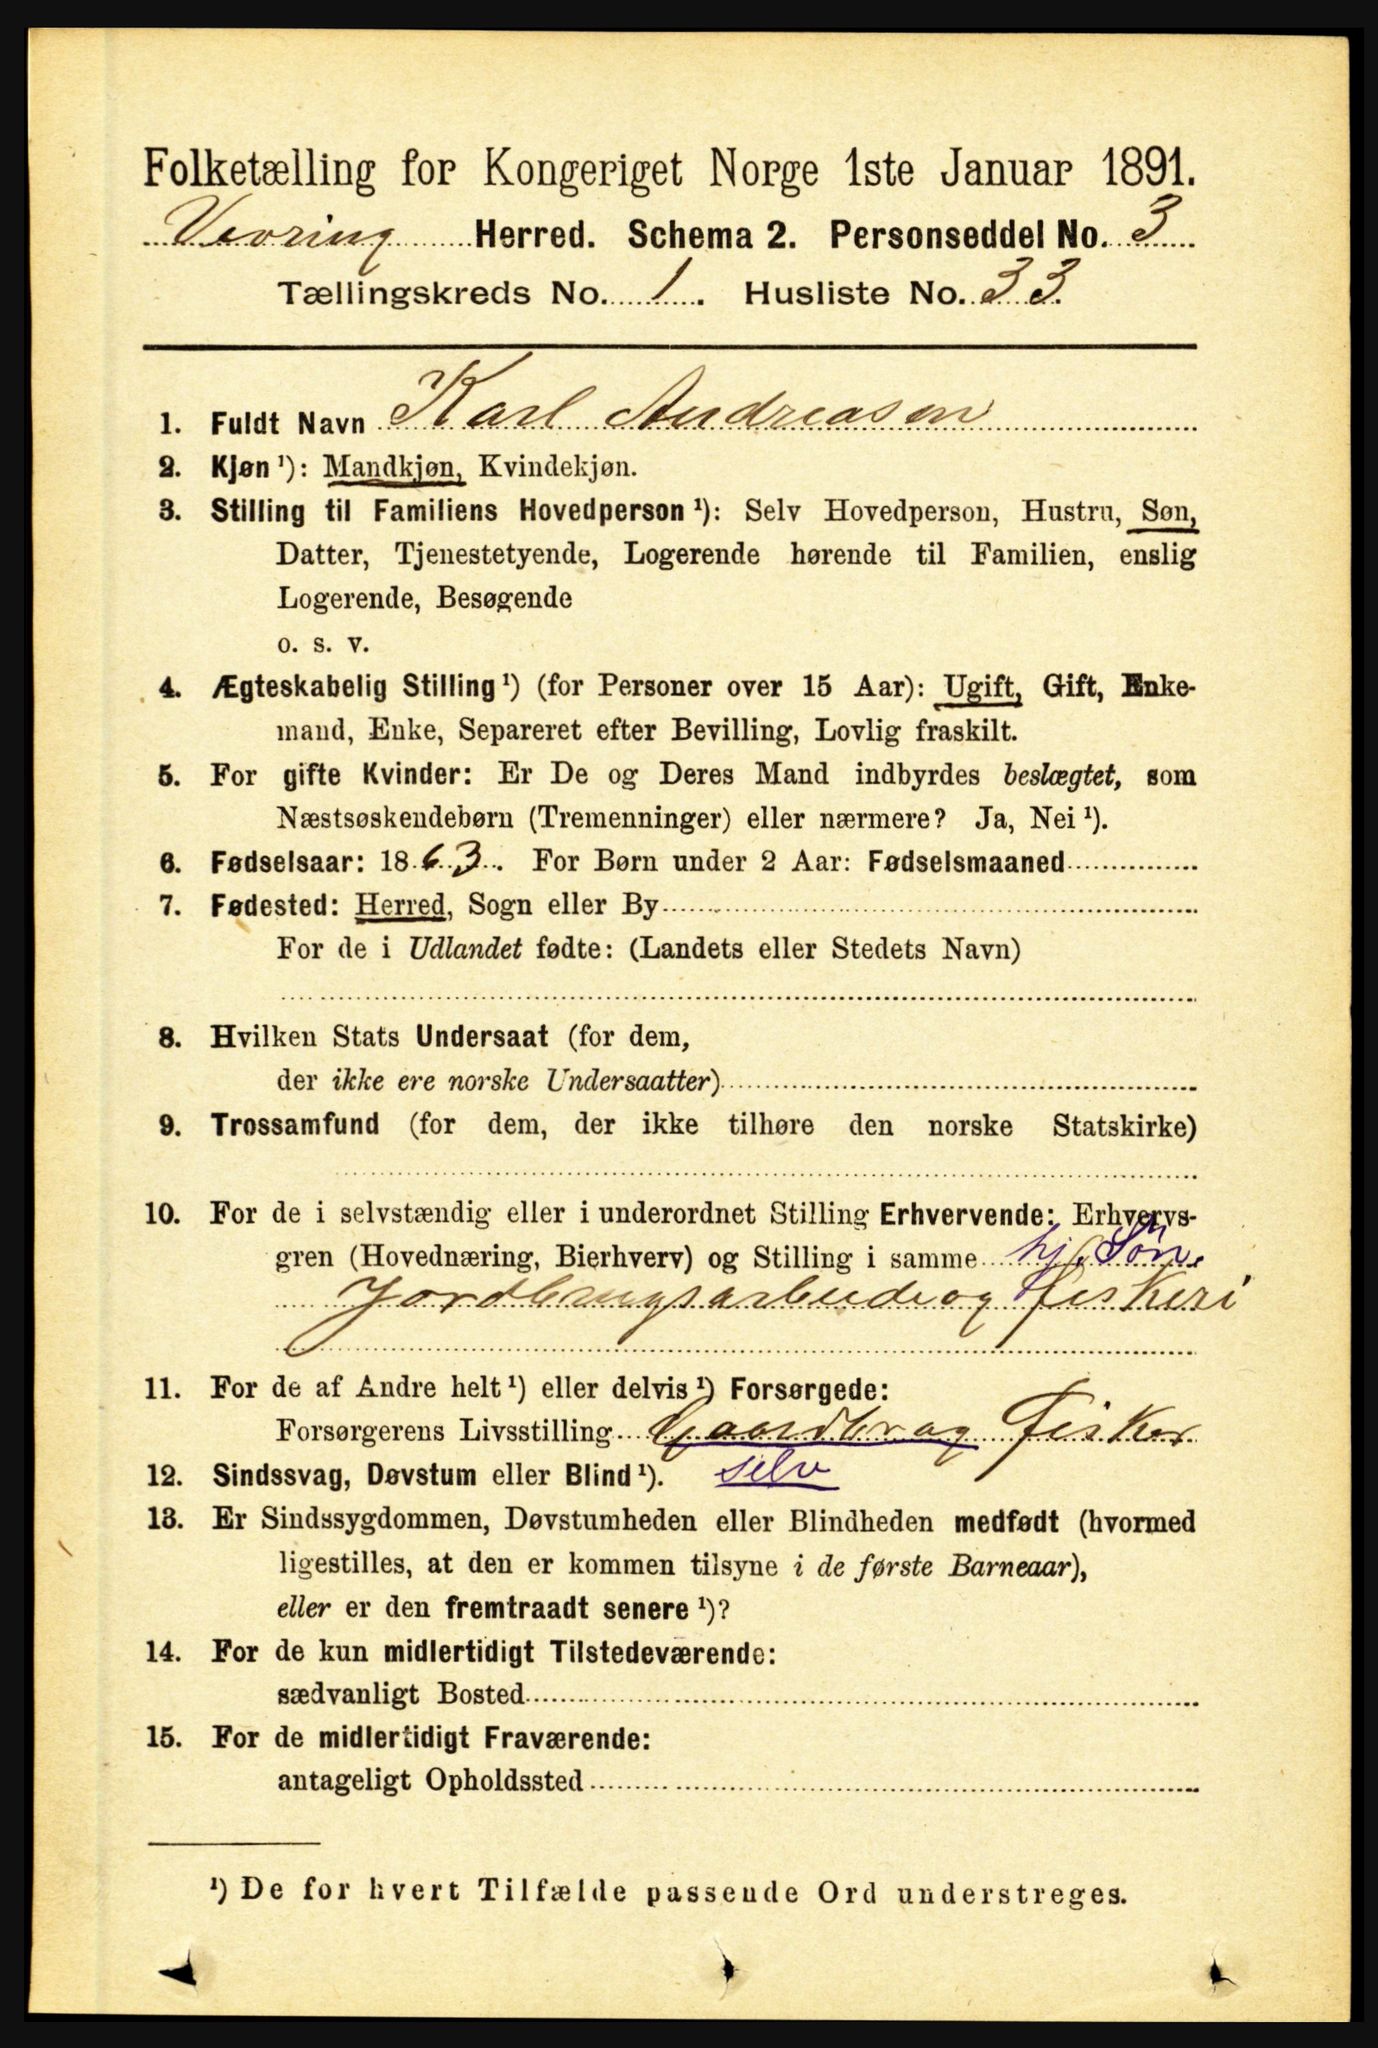 Folketælling for Kongeriget Norge 1ste Januar 1891.
Vevring Herred. Schema 2. Personseddel No. 3
Tællingskreds No. 1. Husliste No. 33.
1. Fuldt Navn Karl Andreasen
2. Kjøn ¹): Mandkjøn, Kvindekjøn.
3. Stilling til Familiens Hovedperson ¹): Selv Hovedperson, Hustru, Søn,
Datter, Tjenestetyende, Logerende hørende til Familien, enslig
Logerende, Besøgende
o. s. v.
4. Ægteskabelig Stilling ¹) (for Personer over 15 Aar): Ugift, Gift, Enke-
mand, Enke, Separeret efter Bevilling, Lovlig fraskilt.
5. For gifte Kvinder: Er De og Deres Mand indbyrdes beslægtet, som
Næstsøskendebørn (Tremenninger) eller nærmere? Ja, Nei ¹).
6. Fødselsaar: 1863. For Børn under 2 Aar: Fødselsmaaned
7. Fødested: Herred, Sogn eller By
For de i Udlandet fødte: (Landets eller Stedets Navn)
8. Hvilken Stats Undersaat (for dem,
der ikke ere norske Undersaatter)
9. Trossamfund (for dem, der ikke tilhøre den norske Statskirke)
10. For de i selvstændig eller i underordnet Stilling Erhvervende: Erhvervs-
gren (Hovednæring, Bierhverv) og Stilling i samme hj. Søn.
Jordbrugsarbeide og fiskeri
11. For de af Andre helt ¹) eller delvis ¹) Forsørgede:
Forsørgerens Livsstilling Gaardbr og Fisker
12. Sindssvag, Døvstum eller Blind ¹). selv
13. Er Sindssygdommen, Døvstumheden eller Blindheden medfødt (hvormed
ligestilles, at den er kommen tilsyne i de første Barneaar),
eller er den fremtraadt senere ¹)?
14. For de kun midlertidigt Tilstedeværende:
sædvanligt Bosted
15. For de midlertidigt Fraværende:
antageligt Opholdssted
¹) De for hvert Tilfælde passende Ord understreges.